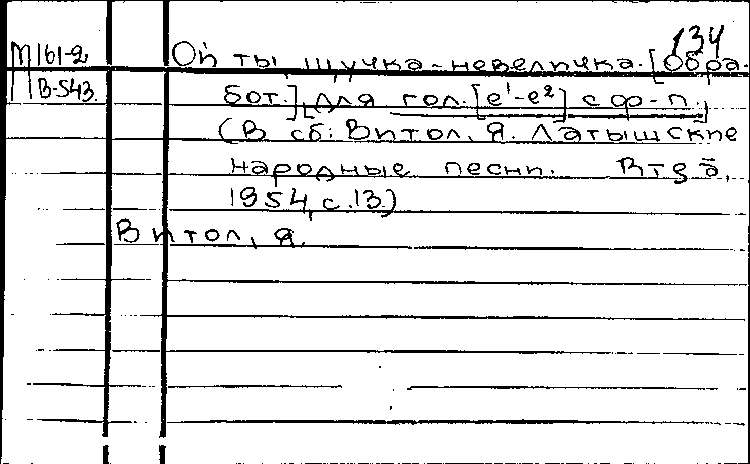 134
М161-2 Ой ты, щучка-невеличка. [Обра-
В-543. бот.] [для гол. [e¹-e²] с ф-п.]
(В сб: Витол, Я. Латышские
народные песни. Rīgā,
1954, с.13.)
Витол, Я.